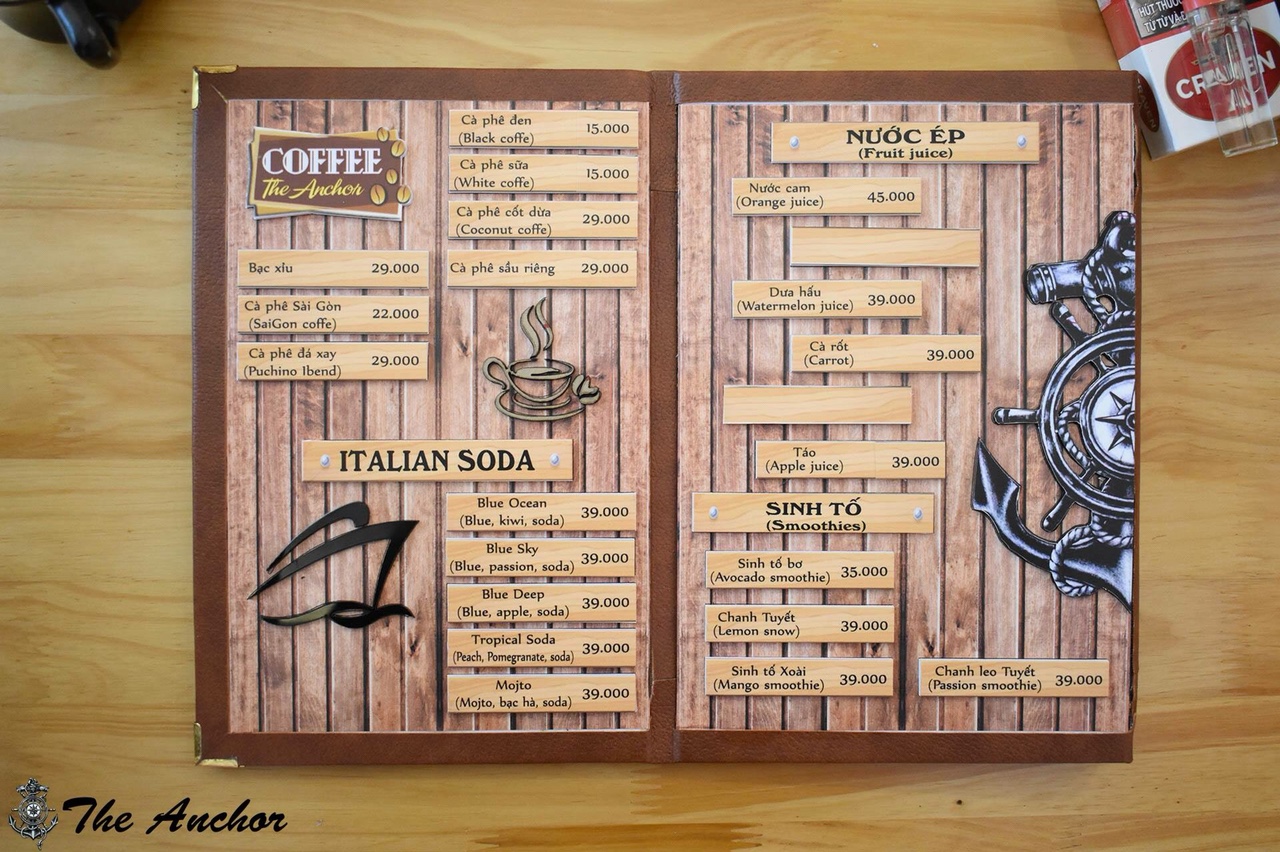 COFFEE
The Anchor
Bạc xỉu 29.000
Cà phê Sài Gòn
(SaiGon coffe) 22.000
Cà phê đá xay
(Puchino Ibend) 29.000
Cà phê đen
(Black coffe) 15.000
Cà phê sữa
(White coffe) 15.000
Cà phê cốt dừa
(Coconut coffe) 29.000
Cà phê sầu riêng 29.000
ITALIAN SODA
Blue Ocean
(Blue, kiwi, soda) 39.000
Blue Sky
(Blue, passion, soda) 39.000
Blue Deep
(Blue, apple, soda) 39.000
Tropical Soda
(Peach, Pomegranate, soda) 39.000
Mojto
(Mojto, bạc hà, soda) 39.000
NƯỚC ÉP
(Fruit juice)
Nước cam
(Orange juice) 45.000
Dưa hấu
(Watermelon juice) 39.000
Cà rốt
(Carrot) 39.000
Táo
(Apple juice) 39.000
SINH TỐ
(Smoothies)
Sinh tố bơ
(Avocado smoothie) 35.000
Chanh Tuyết
(Lemon snow) 39.000
Sinh tố Xoài
(Mango smoothie) 39.000
Chanh leo Tuyết
(Passion smoothie) 39.000
HÚT THUỐC
TỪ TỪ VÀ
The Anchor